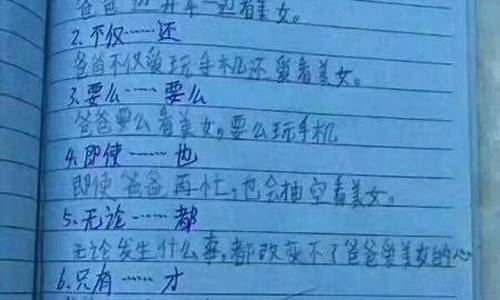 爸爸边开车一边看美女。
2.不仅……还
爸爸不仅爱玩手机还爱看美女。
3.要么……要么
爸爸要么看美女,要么玩手机
4.即使……也
即使爸爸再忙,也会抽空看美女。
5.无论……都
无论发生什么事,都改变不了爸爸爱美女的心
6.只有……才